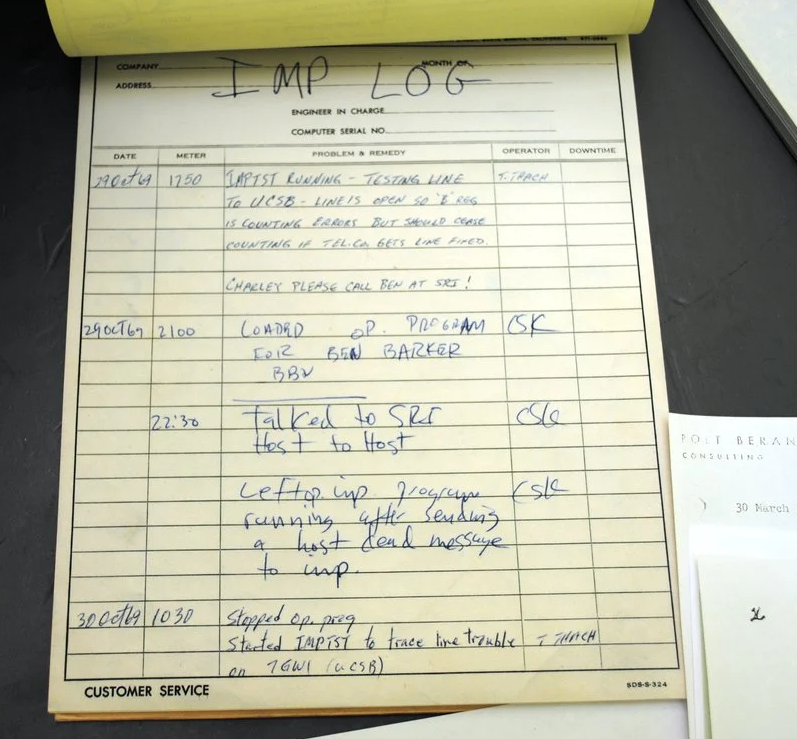 COMPANY MONTH OF
IMP LOG
ADDRESS
ENGINEER IN CHARGE
COMPUTER SERIAL NO.
DATE METER PROBLEM & REMEDY OPERATOR DOWNTIME
29Oct69 1750 IMPTST RUNNING - TESTING LINE T. THACH
TO UCSB - LINE IS OPEN SO 'B' REG
IS COUNTING ERRORS BUT SHOULD CEASE
COUNTING IF TEL.CO. GETS LINE FIXED.
CHARLEY PLEASE CALL BEN AT SRI!
29OCT69 2100 LOADED OP. PROGRAM CSK
FOR BEN BARKER
BBN
22:30 Talked to SRI CSK
Host to Host
Left op. imp. program CSK
running after sending
a host dead message
to imp.
30Oct69 1030 Stopped op. prog
Started IMPTST to trace line trouble T THACH
on (UCSB)
CUSTOMER SERVICE SDS-S-324
BOLT BERAN
CONSULTING
30 March